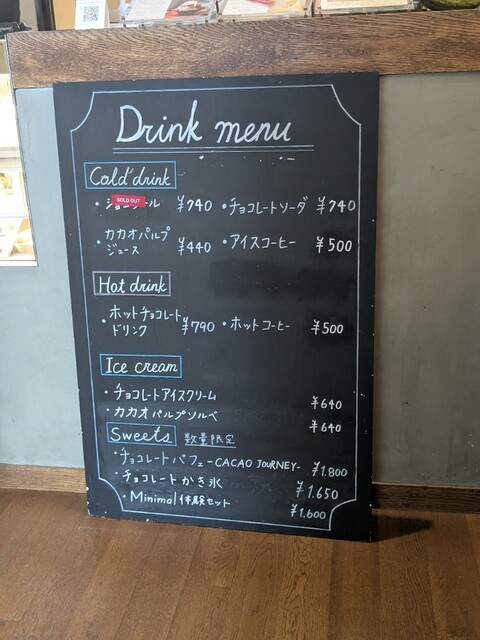 Drink menu
Cold drink
SOLD OUT
¥740 ・チョコレートソーダ ¥740
・カカオパルプ
ジュース ¥440 ・アイスコーヒー ¥500
Hot drink
・ホットチョコレート
ドリンク ¥790 ・ホットコーヒー ¥500
Ice cream
・チョコレートアイスクリーム ¥640
・カカオパルプソルベ ¥640
Sweets 数量限定
・チョコレートパフェ -CACAO JOURNEY- ¥1.800
チョコレートかき氷 ¥1.650
・Minimal体験セット ¥1.600